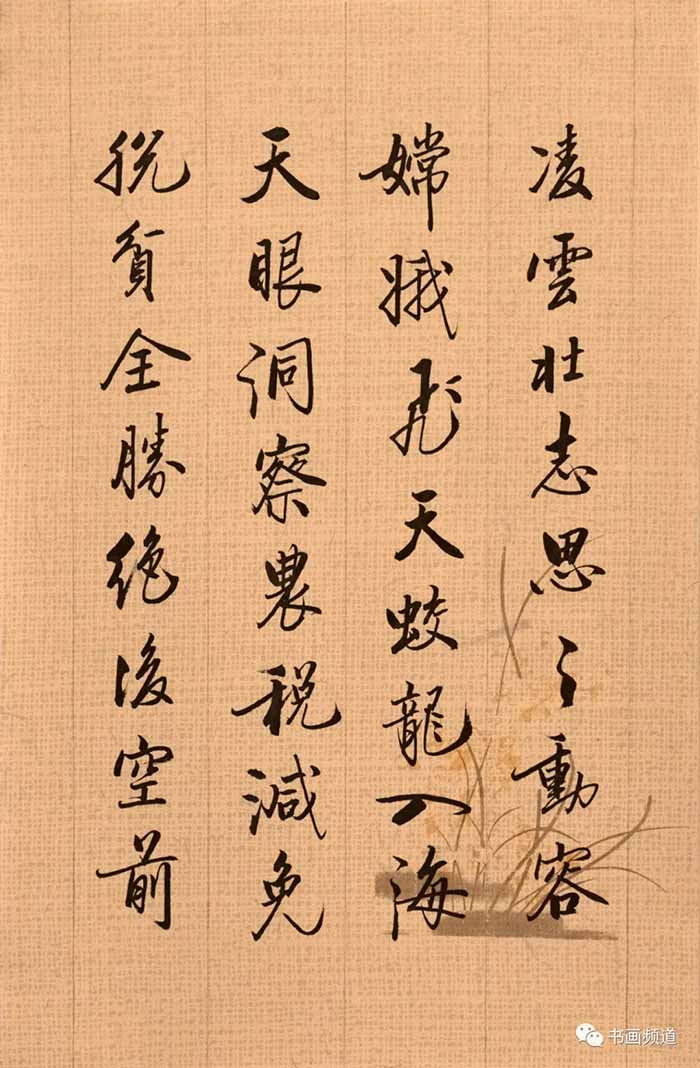 凌雲壯志思之動容
嫦娥飛天蛟龍入海
天眼洞察農税減免
脱貧全勝絶後空前
书画频道